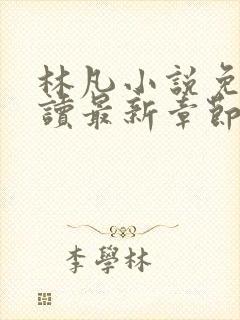 林凡小説免
讀最新章節
李學林